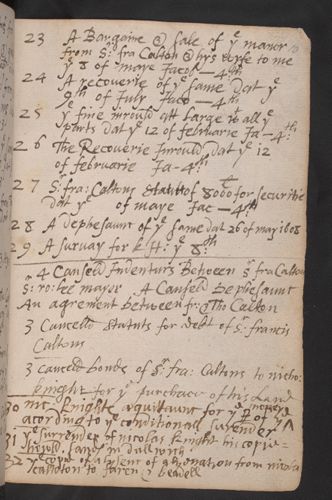 23 A Bargaine & sale of yᵉ manor
from Sʳ fra Calton & hys wyfe to me
yᵉ 8 of maye Jacob — 4ᵗʰ
24 A recoverie of yᵉ same dat yᵉ
9ᵗʰ of July Jaco — 4ᵗʰ
25 yᵉ fine inrould att large to all yᵉ
parts dat yᵉ 12 of februarie Ja - 4ᵗʰ
26 The Recoverie Inrould dat yᵉ 12
of februarie Ja - 4ᵗʰ
27 Sʳ fra: Caltons statut of 8000 for securitie
dat yᵉ of maye Jac — 4ᵗʰ
28 A dephesaunt of yᵉ same dat 26 of may 1608
29 A survay for k H: yᵉ 8ᵗʰ
4 Canseld Indenturs Between sʳ fra Calton
sʳ ro: lee mayor A Canseld dephesaunt
An agrement between fr: & Tho Calton
3 Cancelld statuts for debt of Sʳ francis
Caltons
3 canceld bonds of Sʳ fra: Caltons to nicho:
knight for yᵉ purchace of his Land
30 mr knights aquittaunt for yᵉ of monye
acording to yᵉ conditionall surender
31 yᵉ Surrender of nicolas knight his copie
hould lands in dullwich
32 yᵉ copie of a of alienation from nicola
to